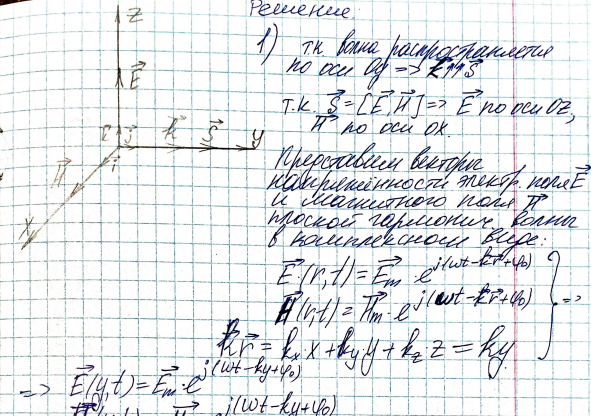 Решение.
Z
1) т.к волна распространяется
по оси Oy => k⃗↑↑S⃗
E⃗
т.к. S⃗ = [E⃗, H⃗] => E⃗ по оси OZ,
H⃗ по оси OX.
k⃗ S⃗ y
j⃗
i⃗
H⃗
X
Представим векторы
напряжённости электр. поля E⃗
и магнитного поля H⃗
плоской гармонич. волны
в комплексном виде:
E⃗(r,t) = E⃗m · e^j(ωt-k⃗r⃗+φ₀)
H⃗(r,t) = H⃗m · e^j(ωt-k⃗r⃗+φ₀) } =>
k⃗r⃗ = kₓx + k_y y + k_z z = ky
=> E⃗(y,t) = E⃗m · e^j(ωt-ky+φ₀)
j(ωt-ky+φ₀)